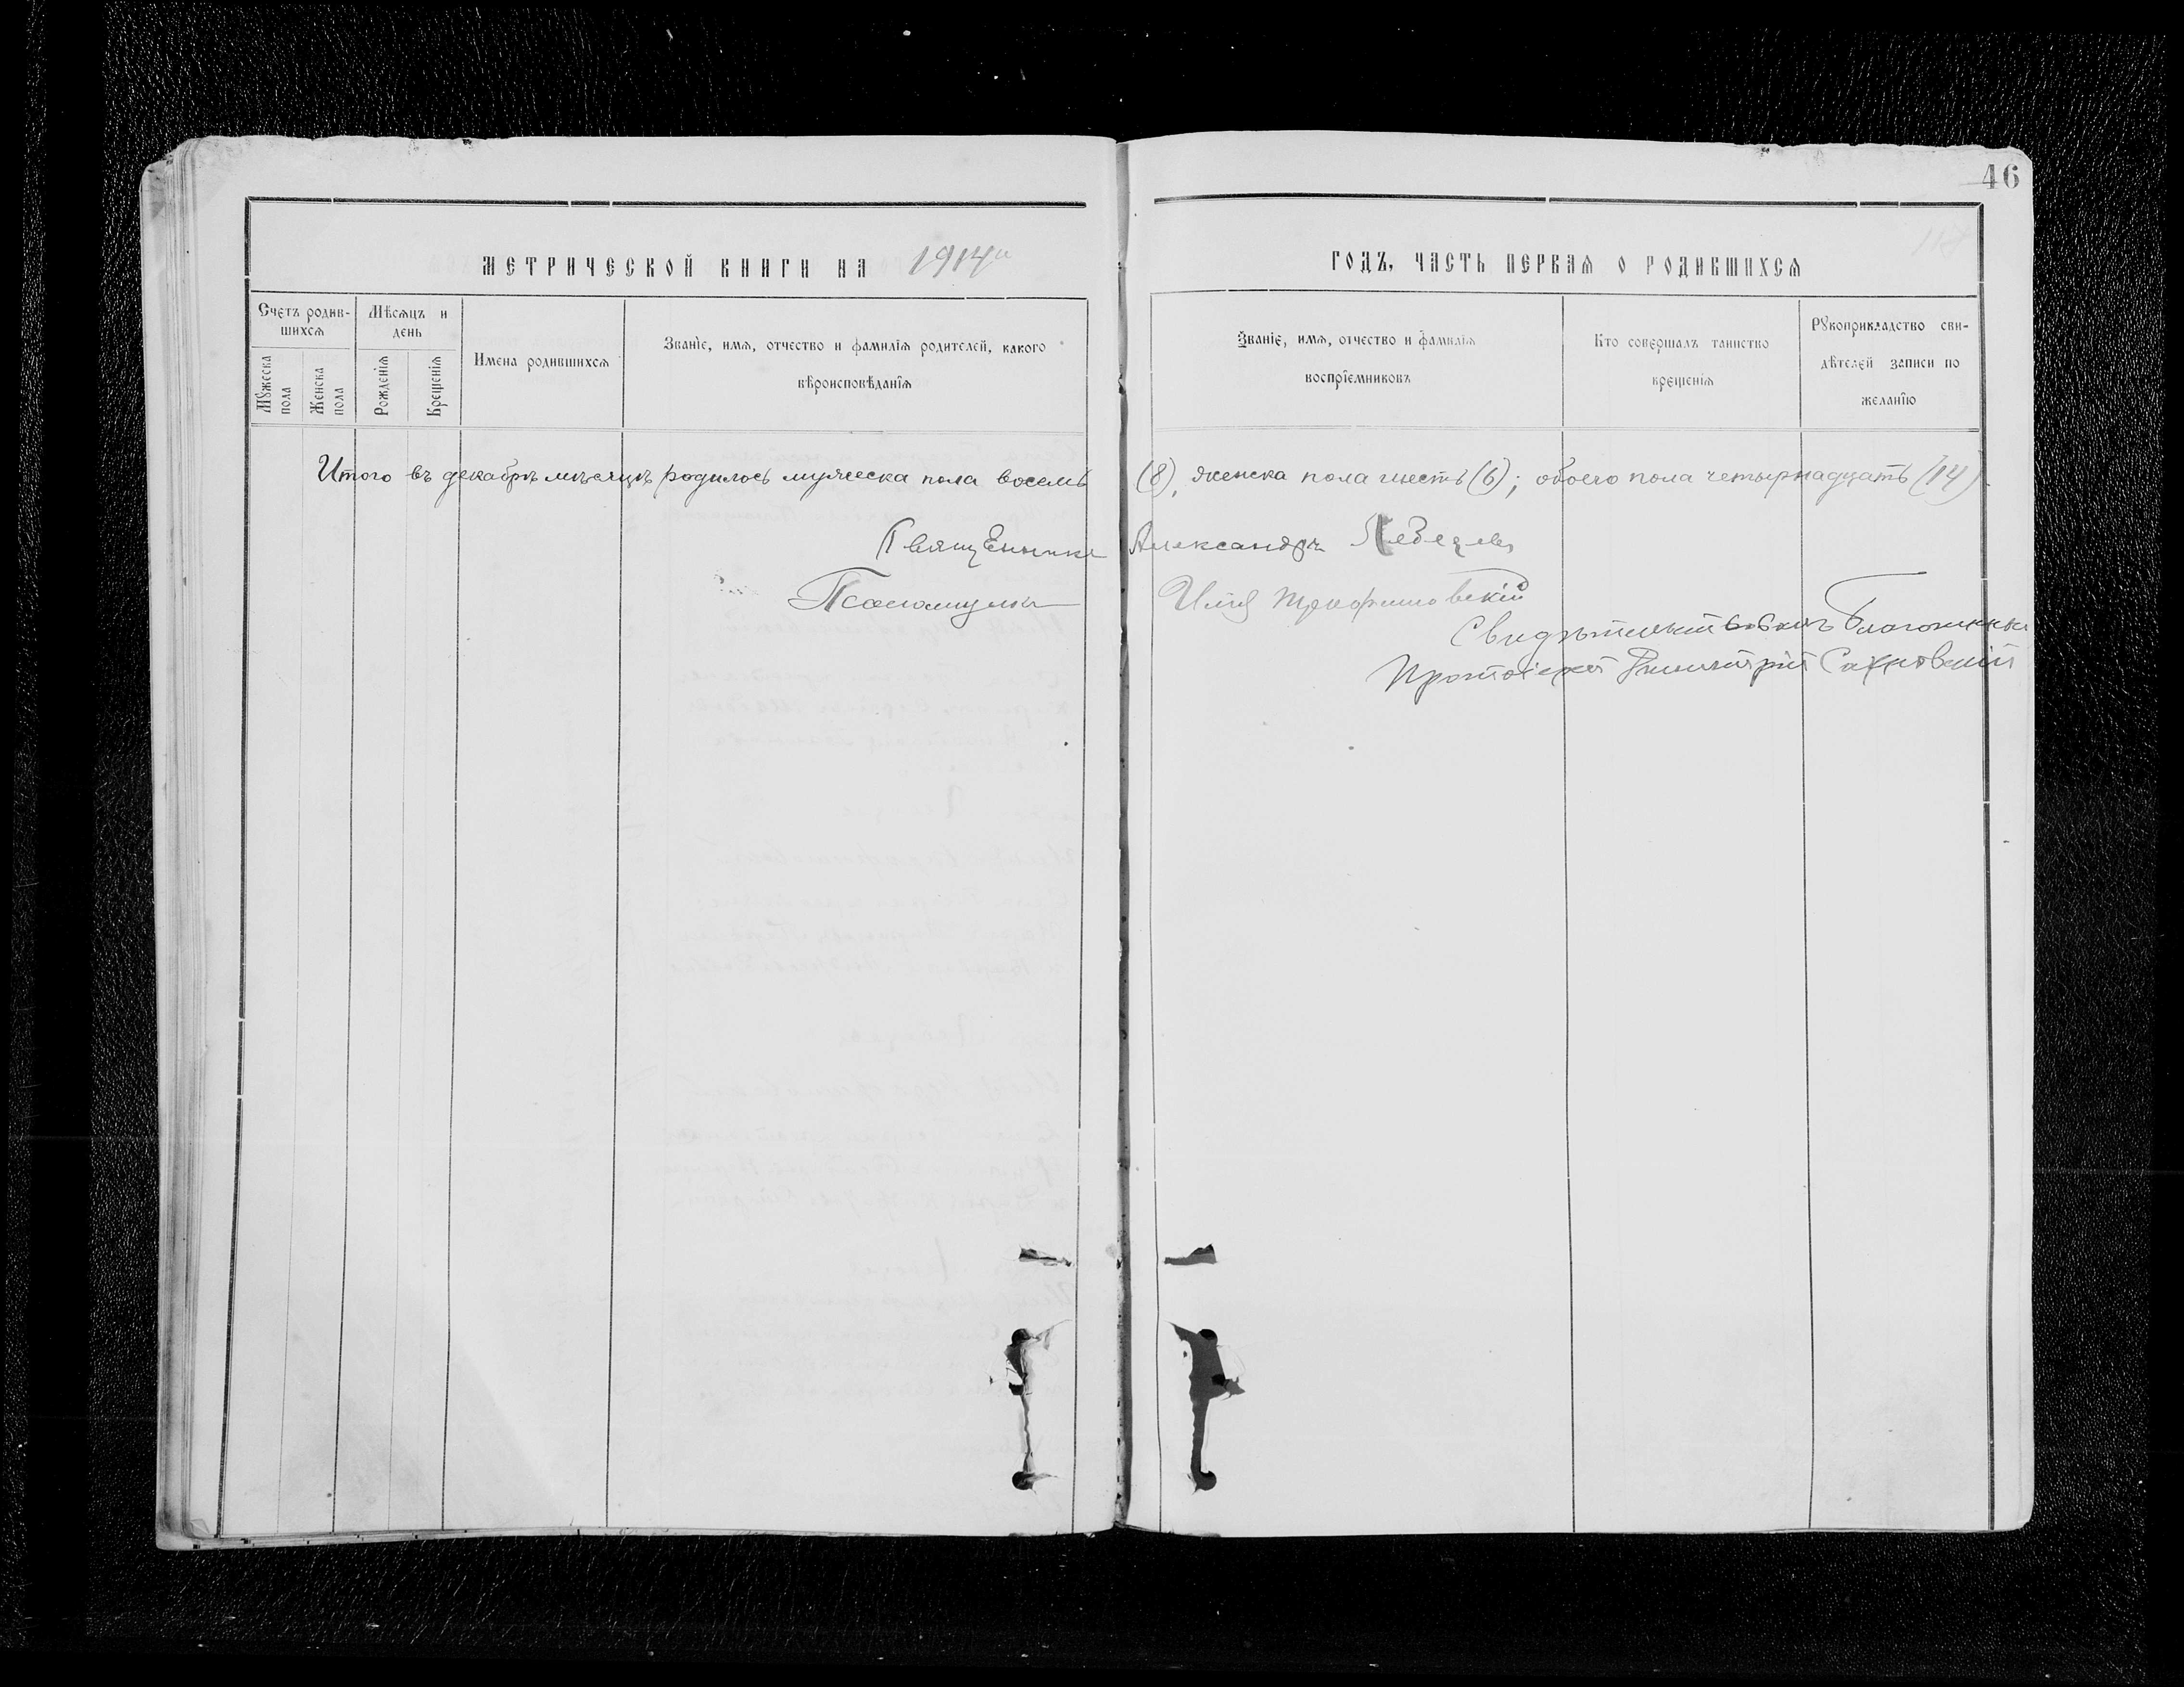 46
МЕТРИЧЕСКОЙ КНИГИ НА 1914й
ГОДЪ, ЧАСТЬ ПЕРВАЯ О РОДИВШИХСЯ
Счетъ родив-
шихся
Мужеска
пола
Женска
пола
Мѣсяцъ и
день
Рожденія
Крещенія
Имена родившихся
Званіе, имя, отчество и фамилія родителей, какого
вѣроисповѣданія
Званіе, имя, отчество и фамилія
воспріемниковъ
Кто совершалъ таинство
крещенія
Рукоприкладство сви-
дѣтелей записи по
желанію
Итого въ декабрѣ мѣсяцѣ родилось мужеска пола восемь (8), женска пола шесть (6); обоего пола четырнадцать (14)
Священникъ Александръ Лебедевъ
Псаломщикъ Илія
Свидѣтельствовалъ Благочинный
Протоіерей Димитрій Сахновскій